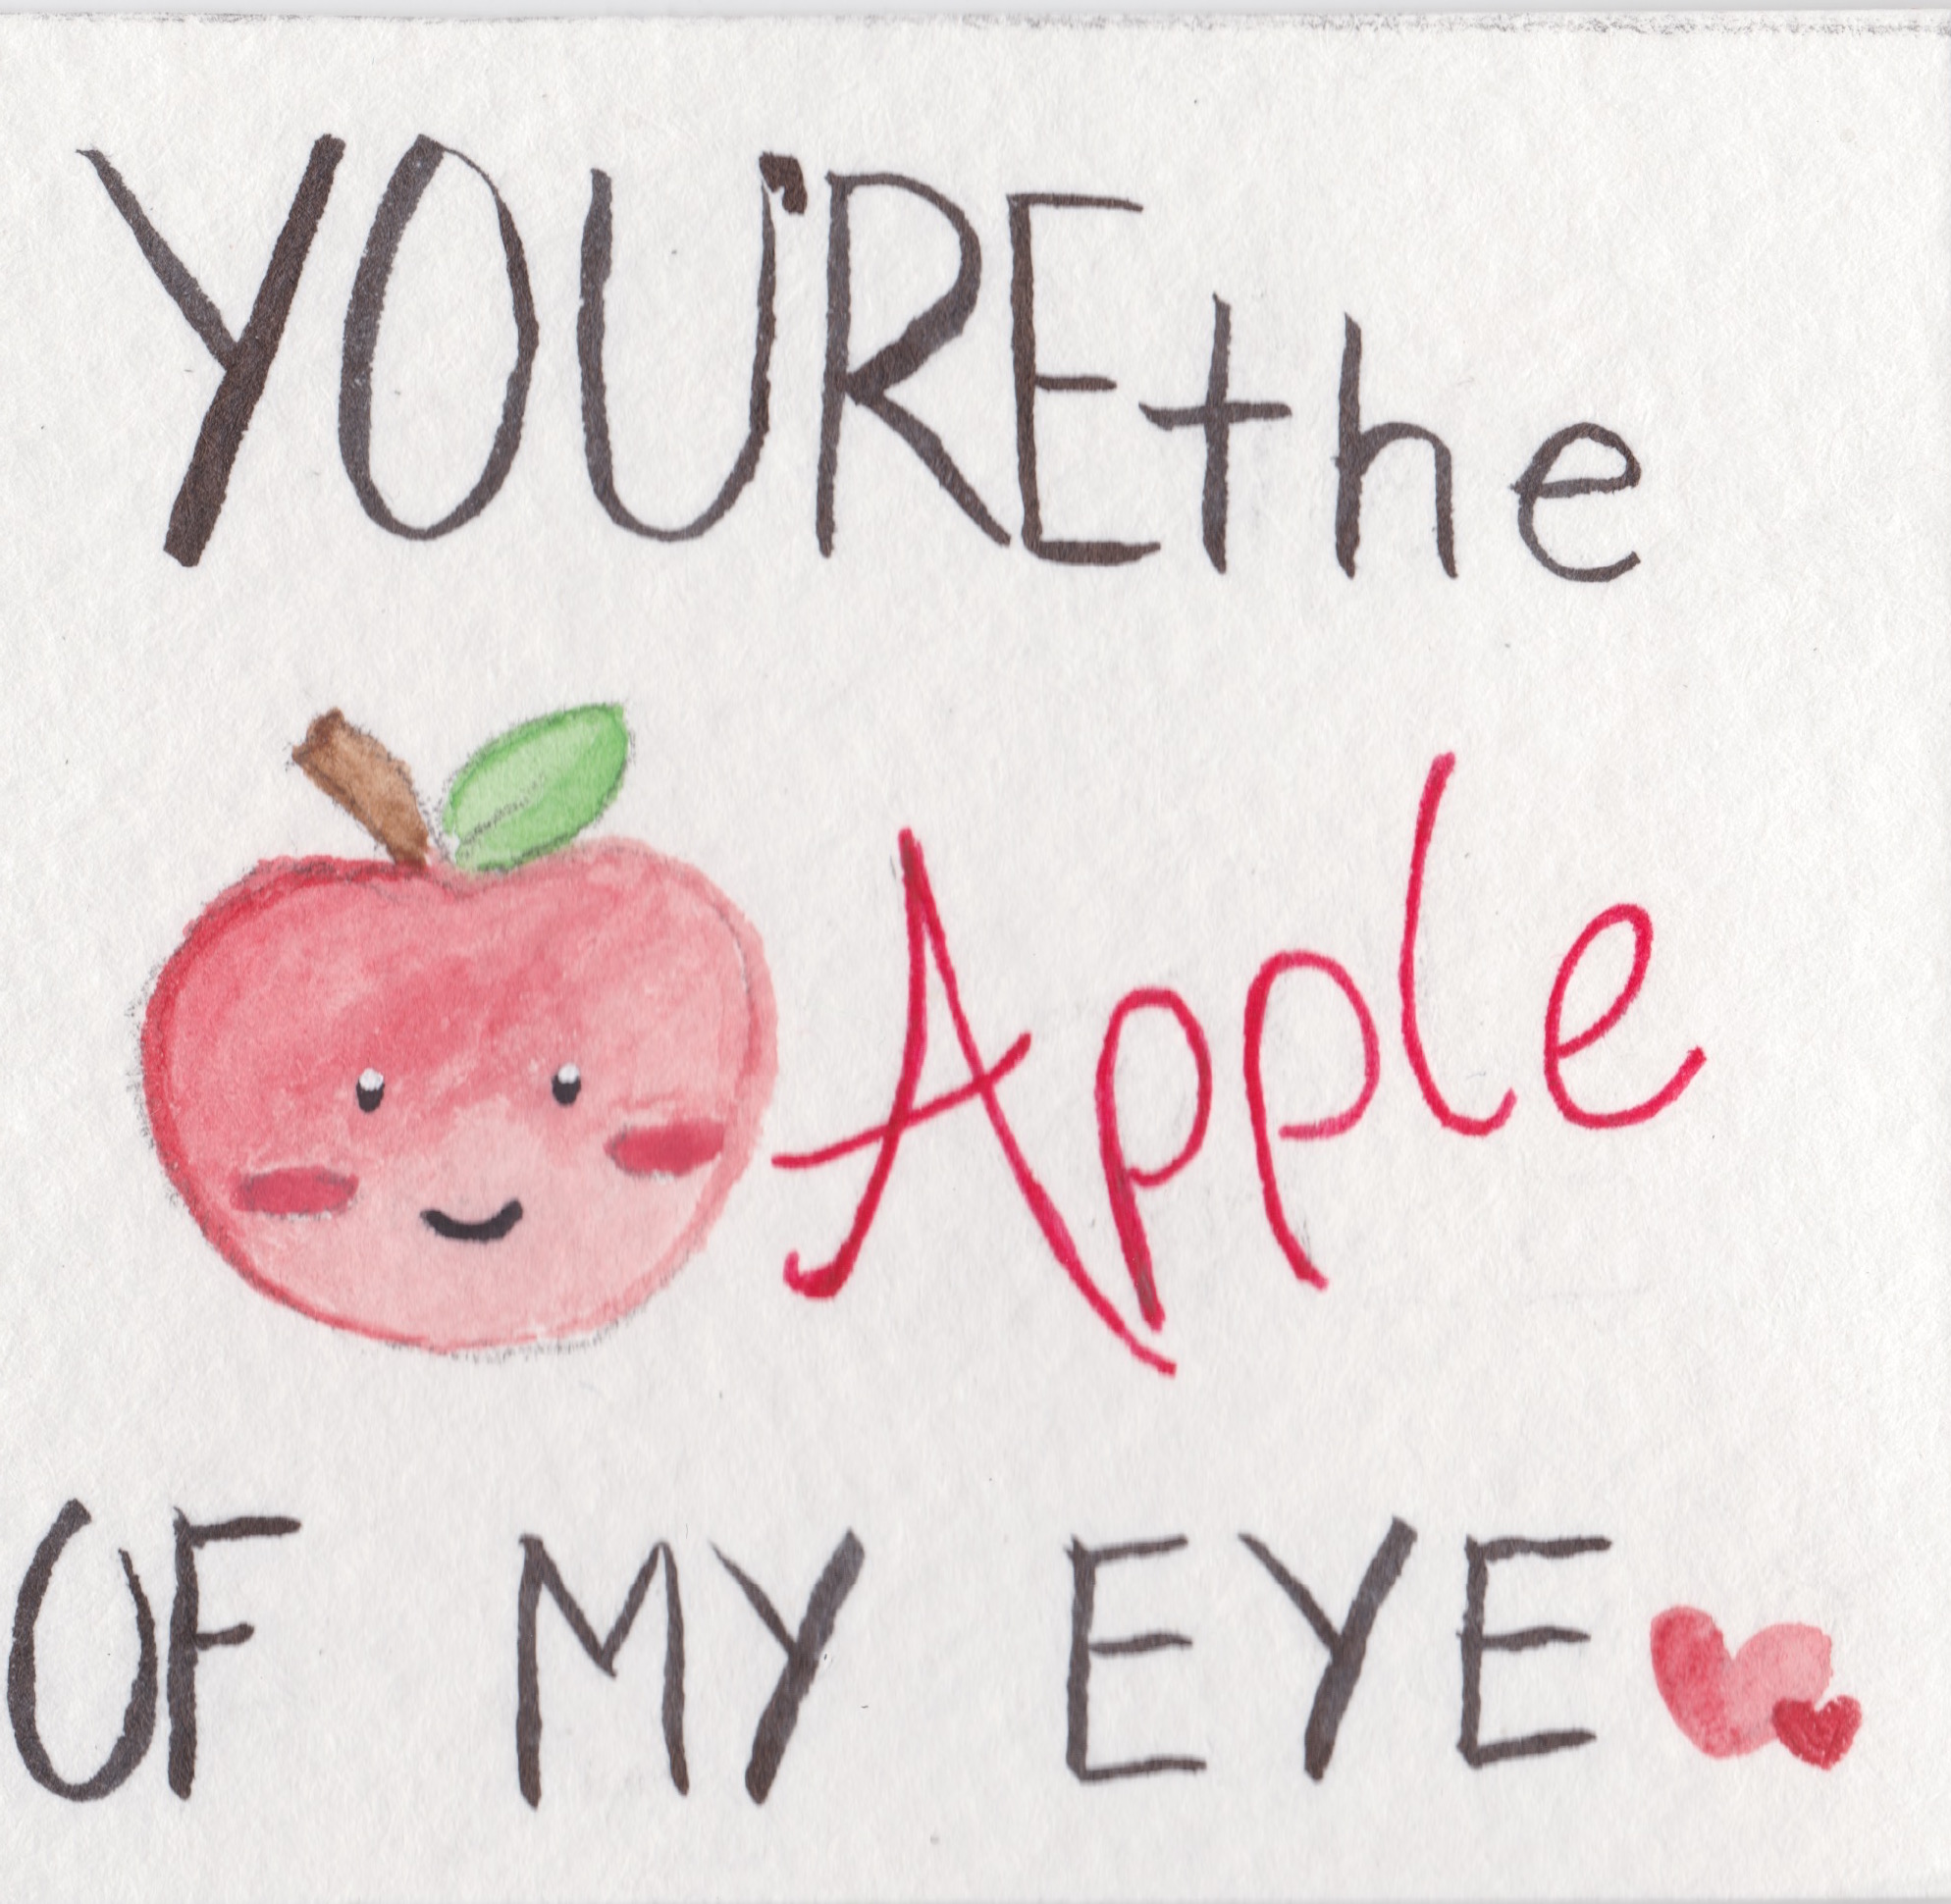 YOU'RE the
Apple
OF MY EYE